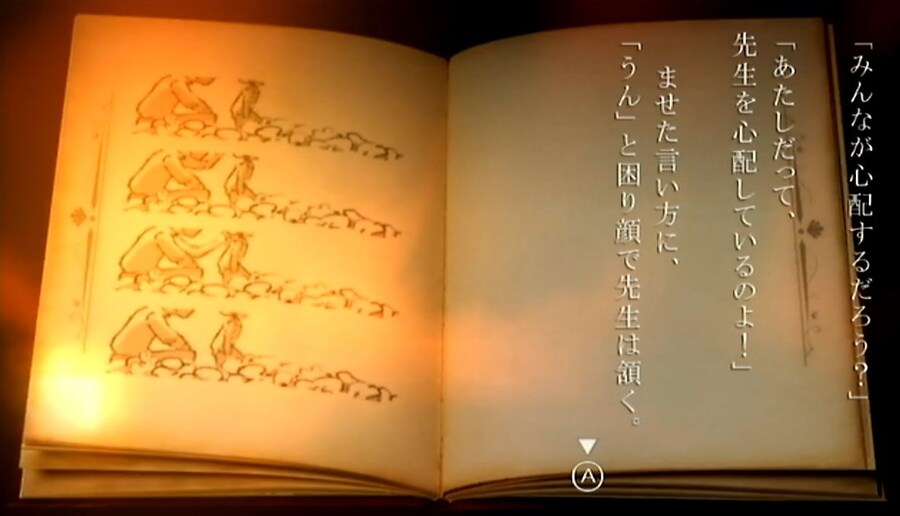 「みんなが心配するだろう？」
「あたしだって、
先生を心配しているのよ！」
ませた言い方に、
「うん」と困り顔で先生は頷く。
A